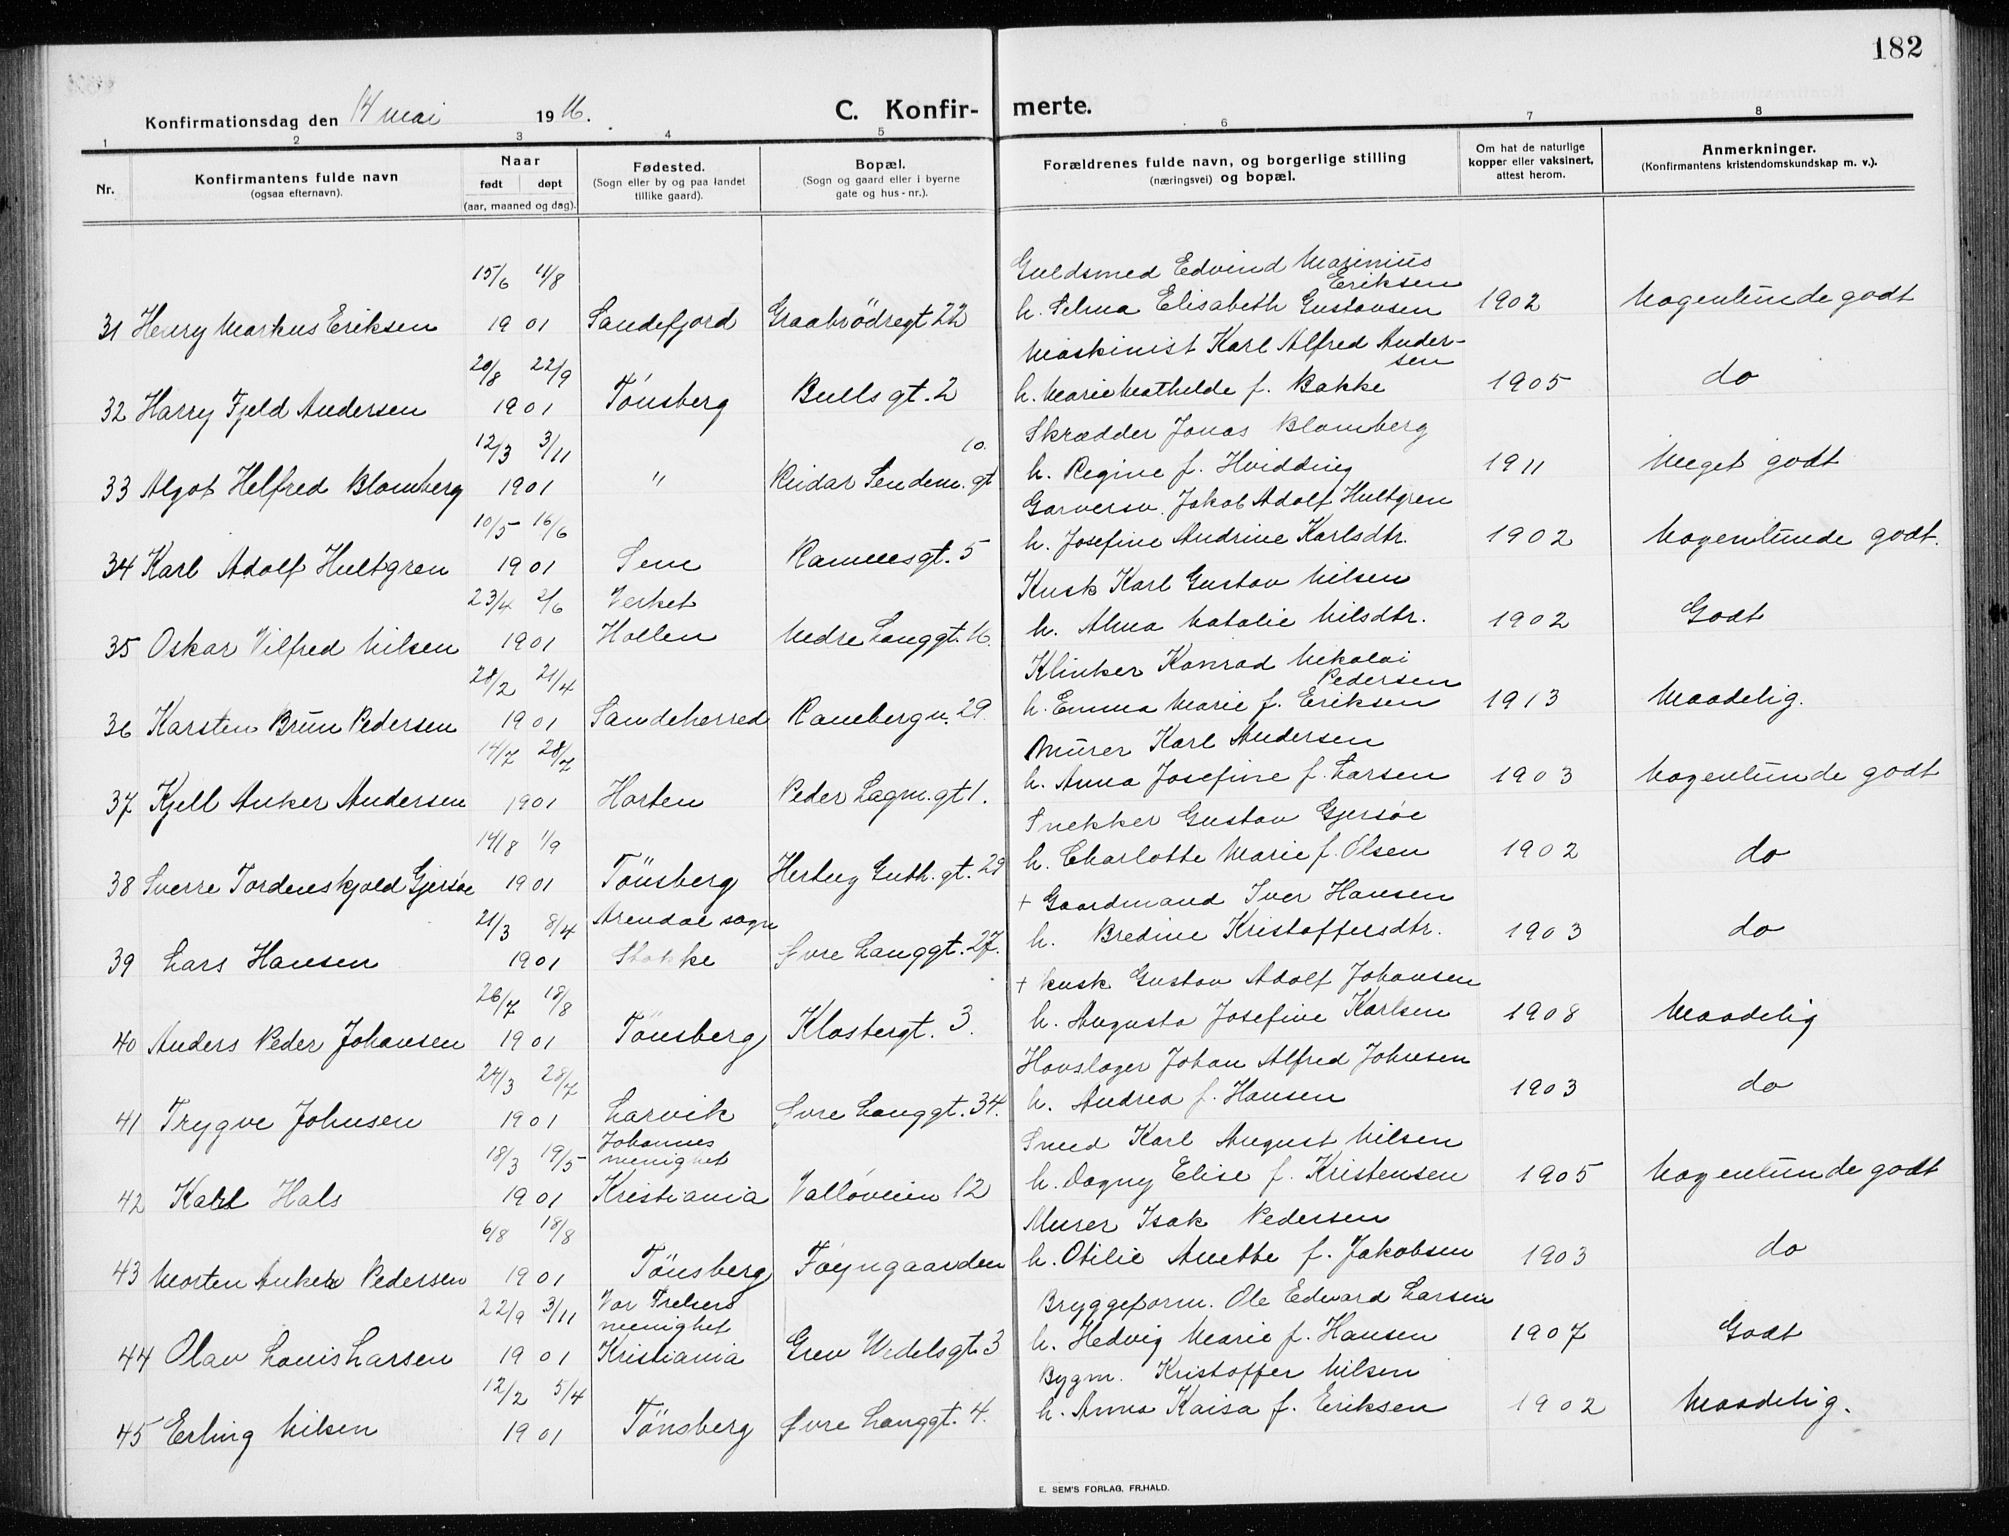 182
Konfirmationsdag den 14 mai 1916. C. Konfir- merte.
1 2 3 4 5 6 7 8
Nr.
Konfirmantens fulde navn
(ogsaa efternavn).
Naar
født døpt
(aar, maaned og dag).
Fødested.
(Sogn eller by og paa landet
tillike gaard).
Bopæl.
(Sogn og gaard eller i byerne
gate og hus-nr.).
Forældrenes fulde navn, og borgerlige stilling
(næringsvei) og bopæl.
Om hat de naturlige
kopper eller vaksinert,
attest herom.
Anmerkninger.
(Konfirmantens kristendomskundskap m. v.).
15/6 11/8 Guldsmed Edvind Marinius
Eriksen
31 Henry Markus Eriksen 1901 Sandefjord Graabrödregt 22 h. Selma Elisabeth Gustavsen 1902 Nogenlunde godt
20/8 22/9 Maskinist Karl Alfred Ander-
sen
32 Harry Fjeld Andersen 1901 Tönsberg Bulls gt. 2 h. Marie Mathilde f. Bakke 1905 do
12/3 3/11 10. Skrædder Jonas Blomberg
33 Algot Helfred Blomberg 1901 " Reidar Sendem. gt h. Regine f. Hvidding 1911 Meget godt
10/5 16/6 Garversv. Jakob Adolf Hultgren
34 Karl Adolf Hultgren 1901 Sem Rammesgt. 5 h. Josefine Andrine Karlsdtr. 1902 Nogenlunde godt.
23/4 2/6 Verket Kusk Karl Gustav Nilsen
35 Oskar Vilfred Nilsen 1901 Hollen Nedre Langgt. 16. h. Alma Natalie Nilsdtr. 1902 Godt
28/2 21/4 Klinker Konrad Nikolai
Pedersen
36 Karsten Brun Pedersen 1901 Sandeherred Rambergv. 29. h. Emma Marie f. Eriksen 1913 Maadelig.
14/7 28/7 Murer Karl Andersen
37 Kjell Anker Andersen 1901 Horten Peder Lagm. gt 1. h. Anna Josefine f. Larsen 1903 Nogenlunde godt
14/8 1/9 Snekker Gustav Gjersøe
38 Sverre Tordenskjold Gjersøe 1901 Tönsberg Hertug Guth. gt. 29 h. Charlotte Marie f. Olsen 1902 do
21/3 8/4 Arendal sogn + Gaardmand Iver Hansen
39 Lars Hansen 1901 Stokke Øvre Langgt. 27. h. Bredine Kristoffersdtr. 1903 do
26/7 18/8 + kusk Gustav Adolf Johansen
40 Anders Peder Johansen 1901 Tönsberg Klostergt. 3. h. Augusta Josefine Karlsen 1908 Maadelig
24/3 28/7 Hovslager Johan Alfred Johnsen
41 Trygve Johnsen 1901 Larvik Øvre Langgt. 34. h. Andrea f. Hansen 1903 do
18/3 19/5 Johannes
menighet Smed Karl August Nilsen
42 Karl Hals 1901 Kristiania Vallöveien 12 h. Dagny Elise f. Kristensen 1905 Nogenlunde godt
6/8 18/8 Murer Isak Pedersen
43 Morten Anker Pedersen 1901 Tönsberg Föyngaarden h. Otilie Anette f. Jakobsen 1903 do
22/9 3/11 Vor Frelsers
menighet Bryggeform. Ole Edvard Larsen
44 Olav Louis Larsen 1901 Kristiania Grev Wedelsgt. 3 h. Hedvig Marie f. Hansen 1907 Godt
12/2 5/4 Bygm. Kristoffer Nilsen
45 Erling Nilsen 1901 Tönsberg Øvre Langgt. 4. h. Anna Kaisa f. Eriksen 1902 Maadelig.
E. SEM'S FORLAG, FR.HALD.